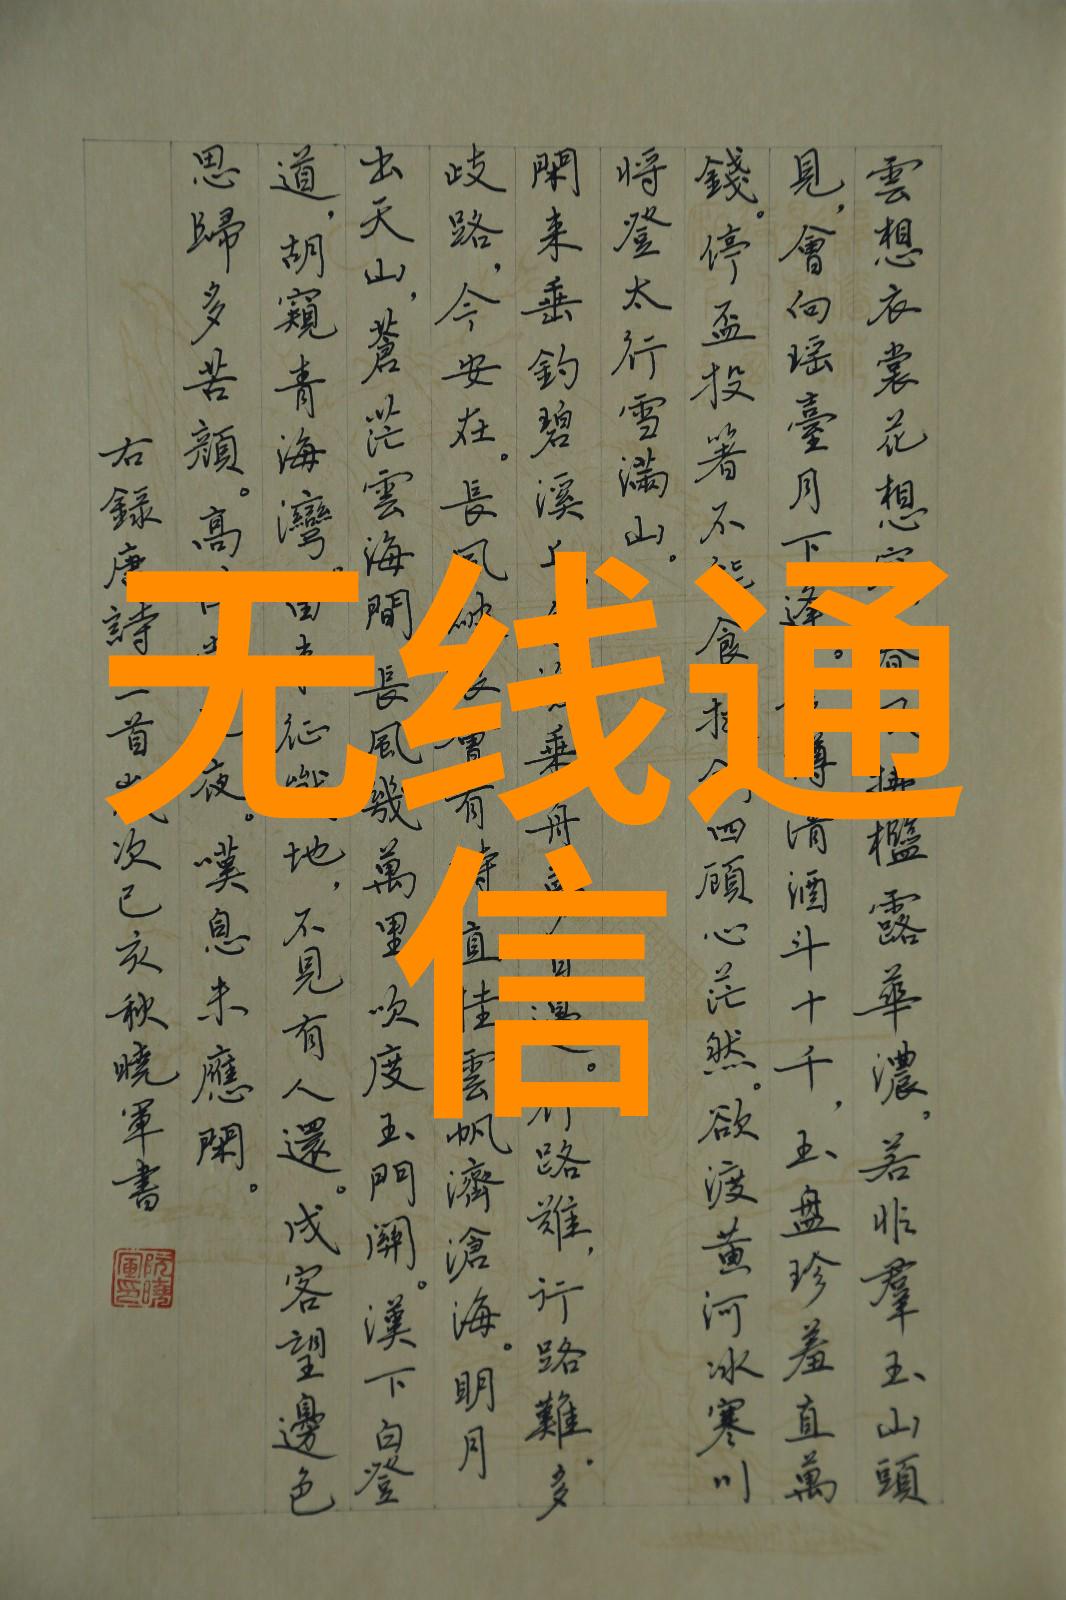 无线通
信
雲想衣裳花想檻露華濃,若非羣玉山頭
見,會向瑤臺月下逢。清酒斗十千,玉盤珍羞直萬
錢。停盃投箸不能食四顧心茫然。欲渡黃河冰寒川
将登太行雪滿山。
閑来垂釣碧溪乘舟。行路難,行路難。多
歧路,今安在。長風會有時直挂雲帆濟滄海。明月
出天山,蒼茫雲海間長風幾萬里吹度玉門關。漢下白登
道,胡窺青海灣。征戰地,不見有人還。戍客望邊色
思歸多苦顔。高夜。嘆息未應閑。
右録唐詩一首次己亥秋曉軍書
阮曉軍印